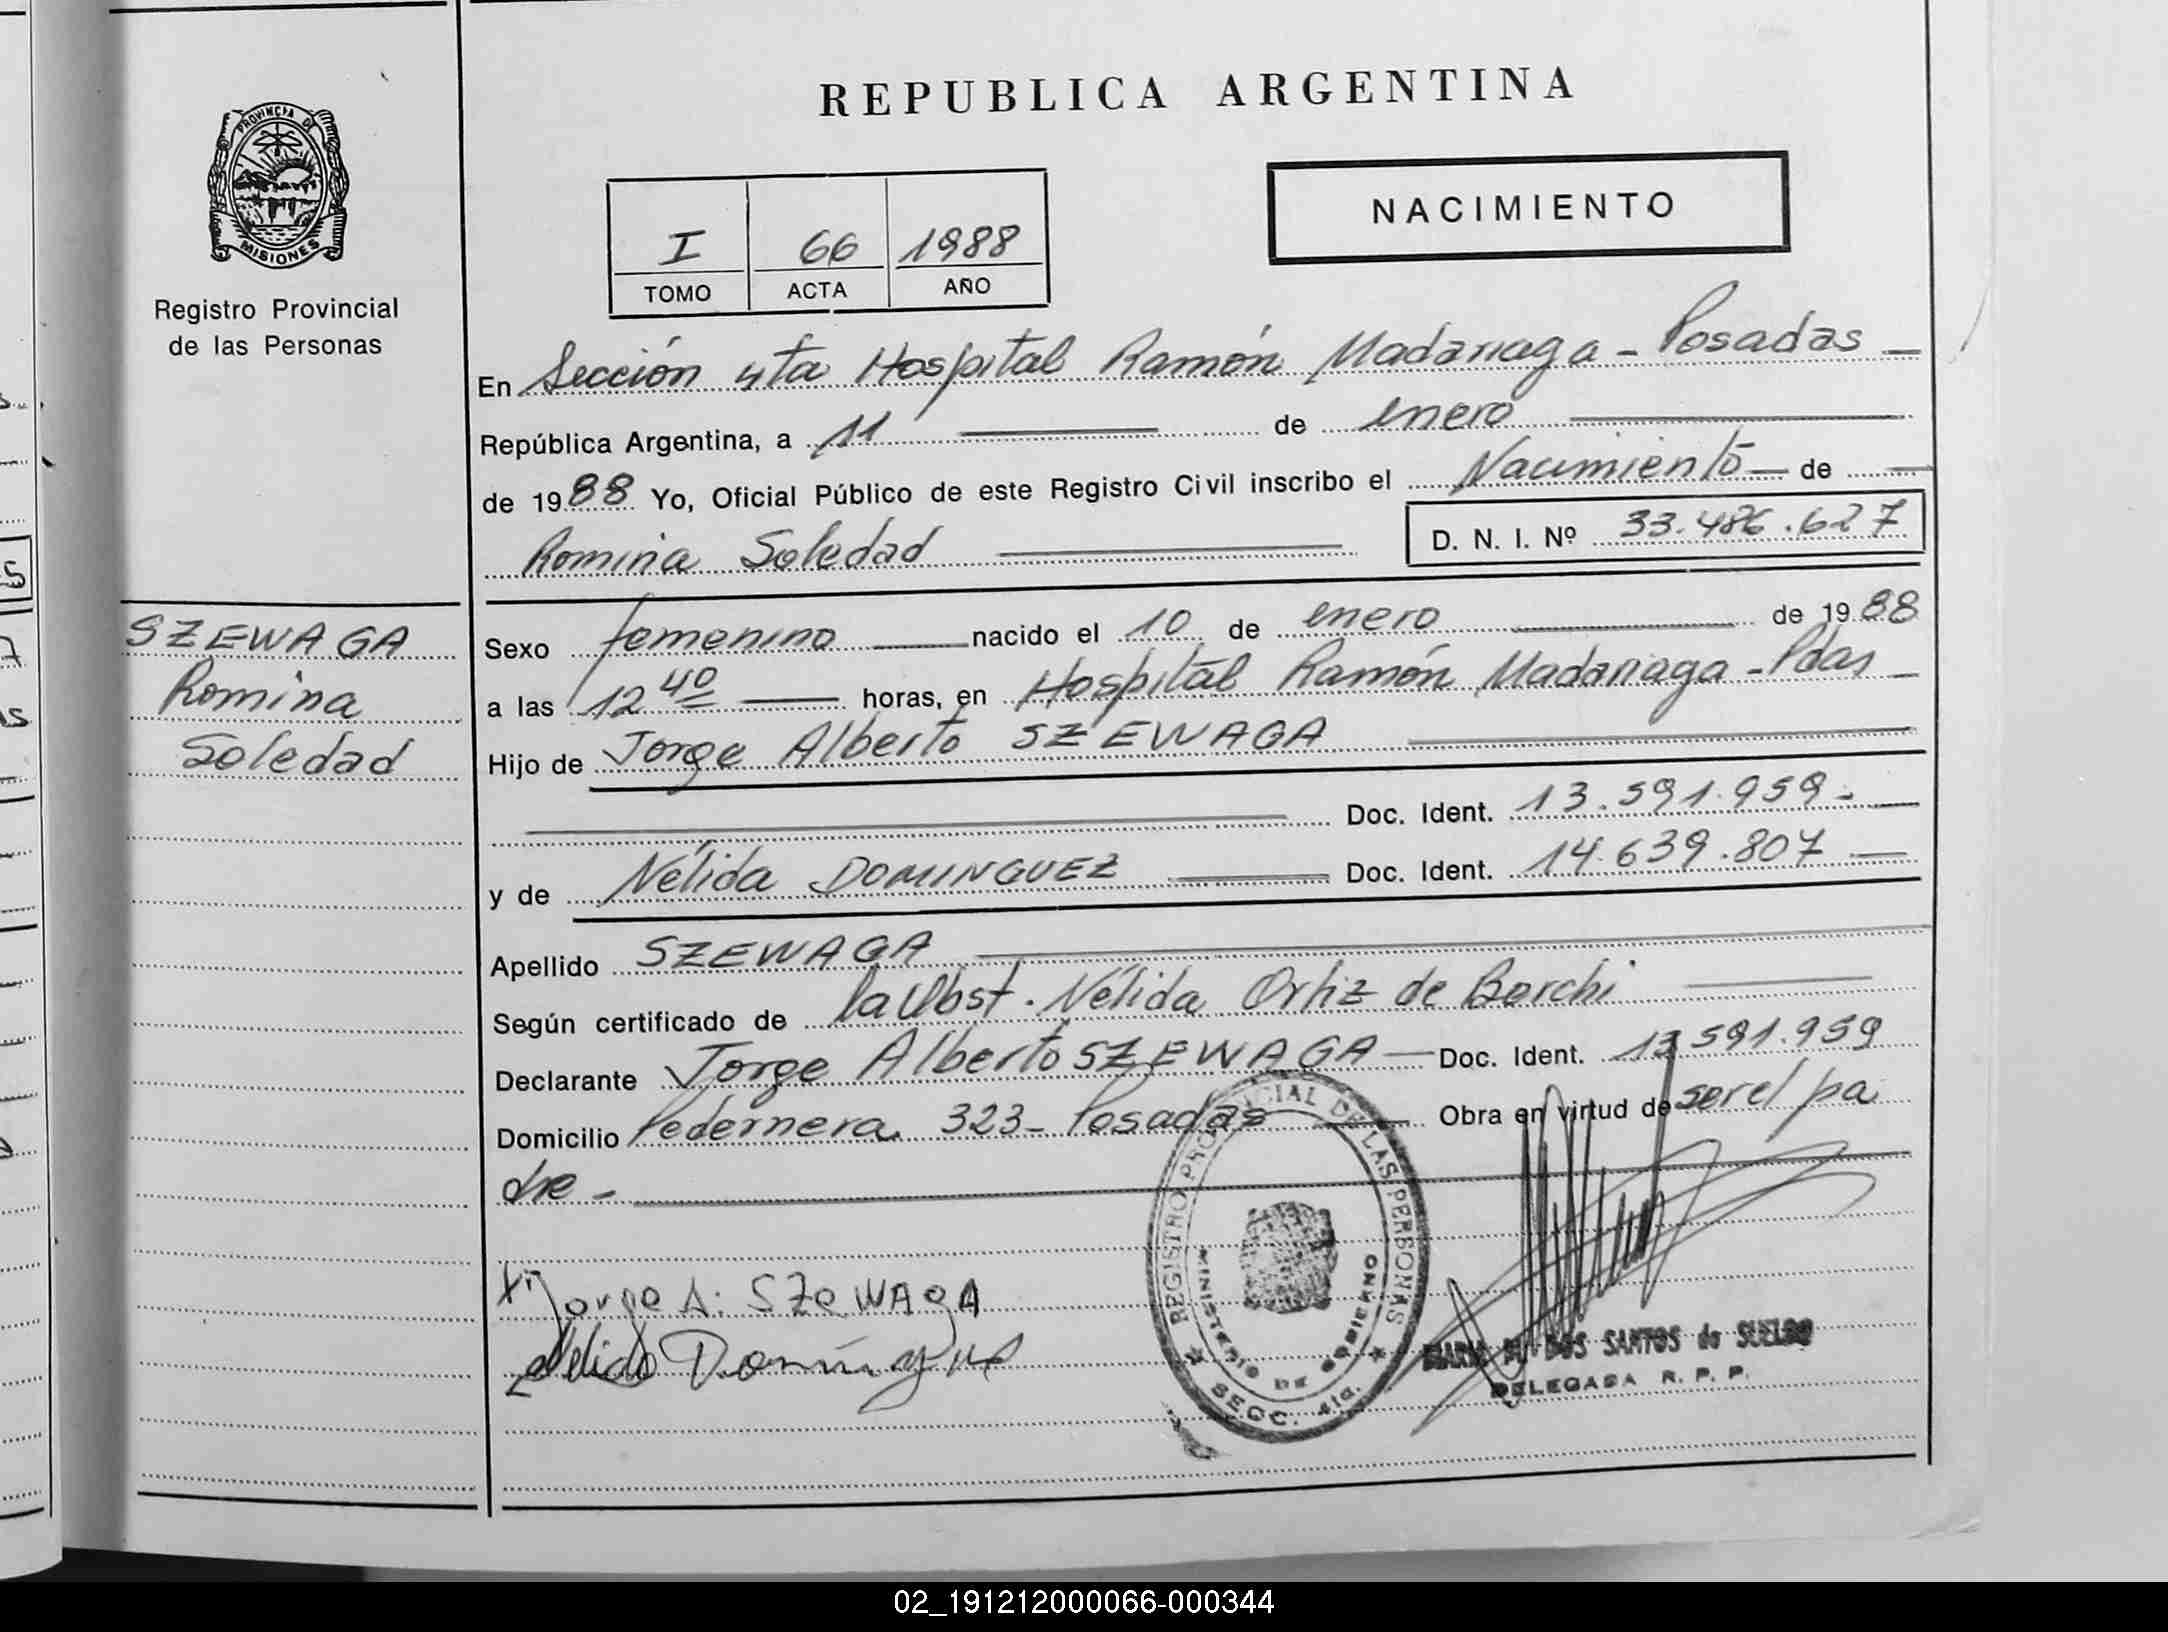 REPUBLICA ARGENTINA
PROVINCIA DE
MISIONES
Registro Provincial
de las Personas
I 66 1988
TOMO ACTA AÑO
NACIMIENTO
En Sección 4ta Hospital Ramón Madariaga - Posadas
República Argentina, a 11 de enero
de 1988 Yo, Oficial Público de este Registro Civil inscribo el Nacimiento de
Romina Soledad D. N. I. Nº 33.486.627
SZEWAGA
Romina
Soledad
Sexo femenino nacido el 10 de enero de 1988
a las 12 40 horas, en Hospital Ramón Madariaga - Pdas
Hijo de Jorge Alberto SZEWAGA
Doc. Ident. 13.591.959.
y de Nélida DOMINGUEZ Doc. Ident. 14.639.807
Apellido SZEWAGA
Según certificado de la Obst. Nélida Ortiz de Borchi
Declarante Jorge Alberto SZEWAGA Doc. Ident. 13.591.959
Domicilio Pedernera 323 - Posadas Obra en virtud de ser el pa
dre -
Jorge A. SZeWAgA
Nelida
REGISTRO PROVINCIAL DE LAS PERSONAS
MINISTERIO DE GOBIERNO
SECC. 4ta.
MARIA DOS SANTOS de SUELDO
DELEGADA R. P. P.
02_191212000066-000344